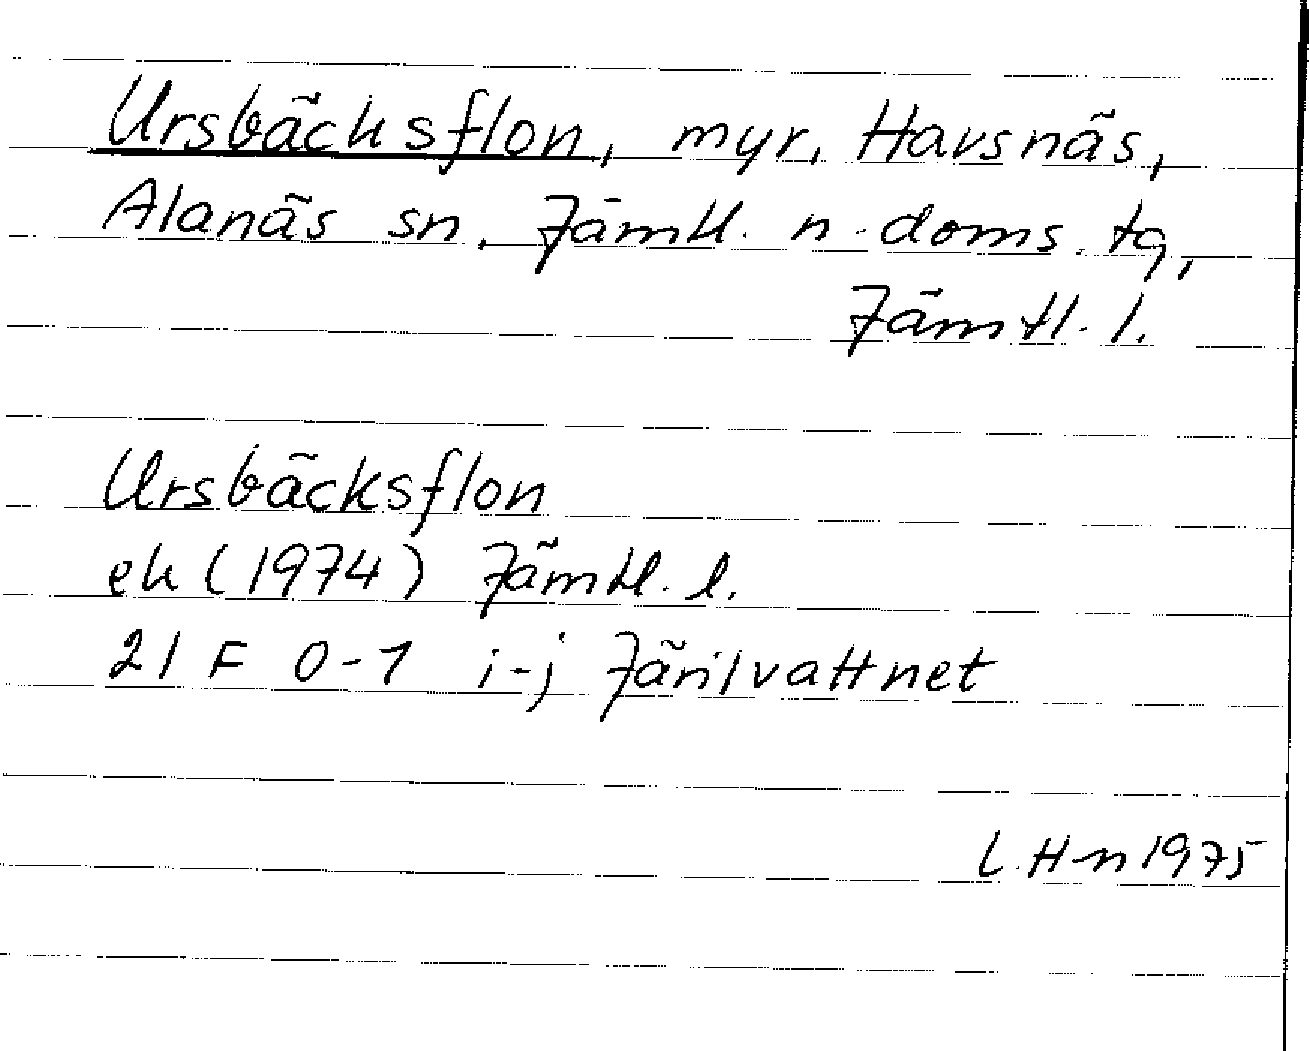 Ursbäcksflon, myr, Havsnäs,
Alanäs sn, Jämtl. n. doms. tg,
Jämtl. l.
Ursbäcksflon
ek (1974) Jämtl. l.
21 F 0-1 i-j Järilvattnet
L. H-n 1975